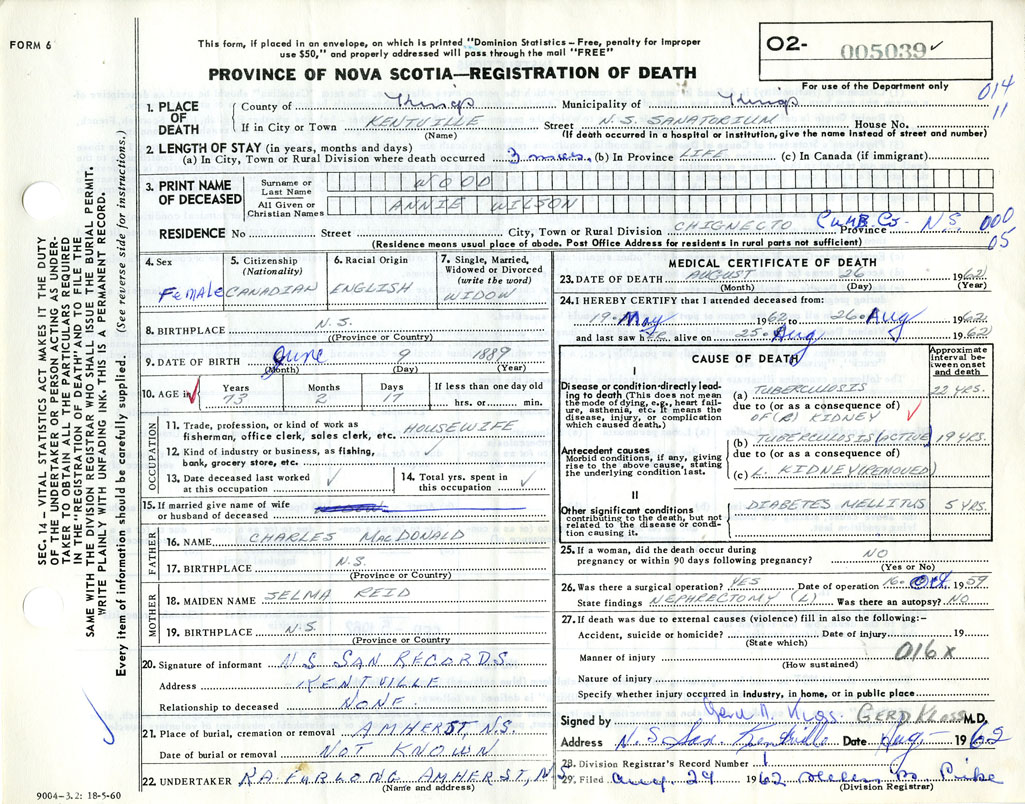 FORM 6
This form, if placed in an envelope, on which is printed "Dominion Statistics – Free, penalty for improper
use $50," and properly addressed will pass through the mail "FREE"
O2- 005039 ✓
PROVINCE OF NOVA SCOTIA—REGISTRATION OF DEATH
For use of the Department only
014
11
1. PLACE OF DEATH
County of Kings Municipality of Kings
If in City or Town KENTVILLE Street N.S. SANATORIUM House No.
(Name) (If death occurred in a hospital or institution, give the name instead of street and number)
2. LENGTH OF STAY (in years, months and days)
(a) In City, Town or Rural Division where death occurred 3 (b) In Province LIFE (c) In Canada (if immigrant)
3. PRINT NAME OF DECEASED
Surname or Last Name WOOD
All Given or Christian Names ANNIE WILSON
RESIDENCE No Street City, Town or Rural Division CHIGNECTO Cumb. Co. Province N.S. 000
05
(Residence means usual place of abode. Post Office Address for residents in rural parts not sufficient)
4. Sex FEMALE
5. Citizenship (Nationality) CANADIAN
6. Racial Origin ENGLISH
7. Single, Married, Widowed or Divorced (write the word) WIDOW
8. BIRTHPLACE N.S.
(Province or Country)
9. DATE OF BIRTH June 9 1889
(Month) (Day) (Year)
10. AGE in Years 73 Months 2 Days 17 If less than one day old hrs. or min.
OCCUPATION
11. Trade, profession, or kind of work as fisherman, office clerk, sales clerk, etc. HOUSEWIFE
12. Kind of industry or business, as fishing, bank, grocery store, etc. ✓
13. Date deceased last worked at this occupation ✓
14. Total yrs. spent in this occupation ✓
15. If married give name of wife or husband of deceased
FATHER
16. NAME CHARLES MacDONALD
17. BIRTHPLACE N.S.
(Province or Country)
MOTHER
18. MAIDEN NAME SELMA REID
19. BIRTHPLACE N.S
(Province or Country)
20. Signature of informant N S SAN RECORDS
Address KENTVILLE
Relationship to deceased NONE.
21. Place of burial, cremation or removal AMHERST, N.S.
Date of burial or removal NOT KNOWN
22. UNDERTAKER R.A. FURLONG AMHERST, N.S.
(Name and address)
MEDICAL CERTIFICATE OF DEATH
23. DATE OF DEATH AUGUST 26 1962
(Month) (Day) (Year)
24. I HEREBY CERTIFY that I attended deceased from:
19. May 1962 to 26. Aug 1962
and last saw her alive on 25. Aug 1962
CAUSE OF DEATH
Approximate interval between onset and death
I
Disease or condition directly leading to death (This does not mean the mode of dying, e.g., heart failure, asthenia, etc. It means the disease, injury, or complication which caused death.)
(a) TUBERCULOSIS 22 YRS.
due to (or as a consequence of)
OF (R) KIDNEY ✓
Antecedent causes
Morbid conditions, if any, giving rise to the above cause, stating the underlying condition last.
(b) TUBERCULOSIS (ACTIVE) 19 YRS.
due to (or as a consequence of)
(c) L. KIDNEY (REMOVED)
II
Other significant conditions
contributing to the death, but not related to the disease or condition causing it.
DIABETES MELLITUS 5 YRS.
25. If a woman, did the death occur during pregnancy or within 90 days following pregnancy? NO
(Yes or No)
26. Was there a surgical operation? YES Date of operation 16. Oct 1959
State findings NEPHRECTOMY (L) Was there an autopsy? NO
27. If death was due to external causes (violence) fill in also the following:-
Accident, suicide or homicide? Date of injury 19
(State which)
Manner of injury 016x
(How sustained)
Nature of injury
Specify whether injury occurred in industry, in home, or in public place
Signed by GERD KLOSS M.D.
Address N.S. San Kentville Date Aug- 1962
28. Division Registrar's Record Number 1
29. Filed Aug. 29 1962
(Division Registrar)
SEC. 14 – VITAL STATISTICS ACT MAKES IT THE DUTY
OF THE UNDERTAKER OR PERSON ACTING AS UNDER-
TAKER TO OBTAIN ALL THE PARTICULARS REQUIRED
IN THE "REGISTRATION OF DEATH" AND TO FILE THE
SAME WITH THE DIVISION REGISTRAR WHO SHALL ISSUE THE BURIAL PERMIT.
WRITE PLAINLY WITH UNFADING INK. THIS IS A PERMANENT RECORD.
Every item of information should be carefully supplied. (See reverse side for instructions.)
9004-3.2: 18-5-60